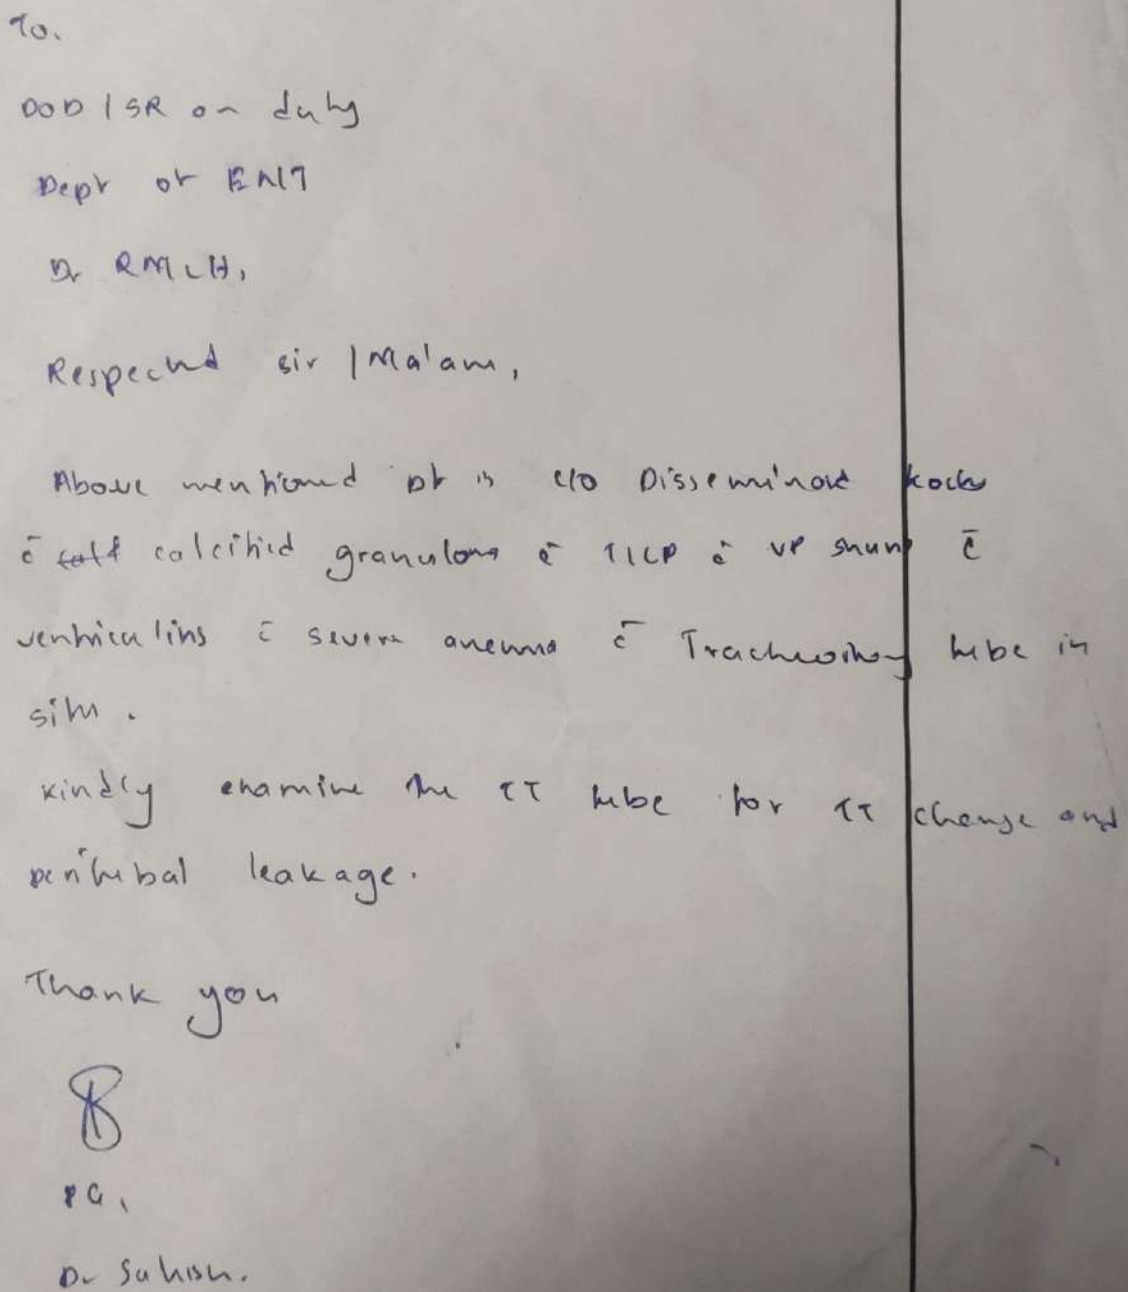 To.
DOD / SR on duty
Dept of ENT
Dr RMLH,
Respected sir / Ma'am,
Above mentioned pt is c/o Disseminated kochs
c̄ calcified granuloma c̄ ↑ICP c̄ VP shunt c̄
ventriculitis c̄ severe anemia c̄ Tracheostomy tube in
situ.
Kindly examine the TT tube for TT change and
peritubal leakage.
Thank you
PG,
Dr Satish.